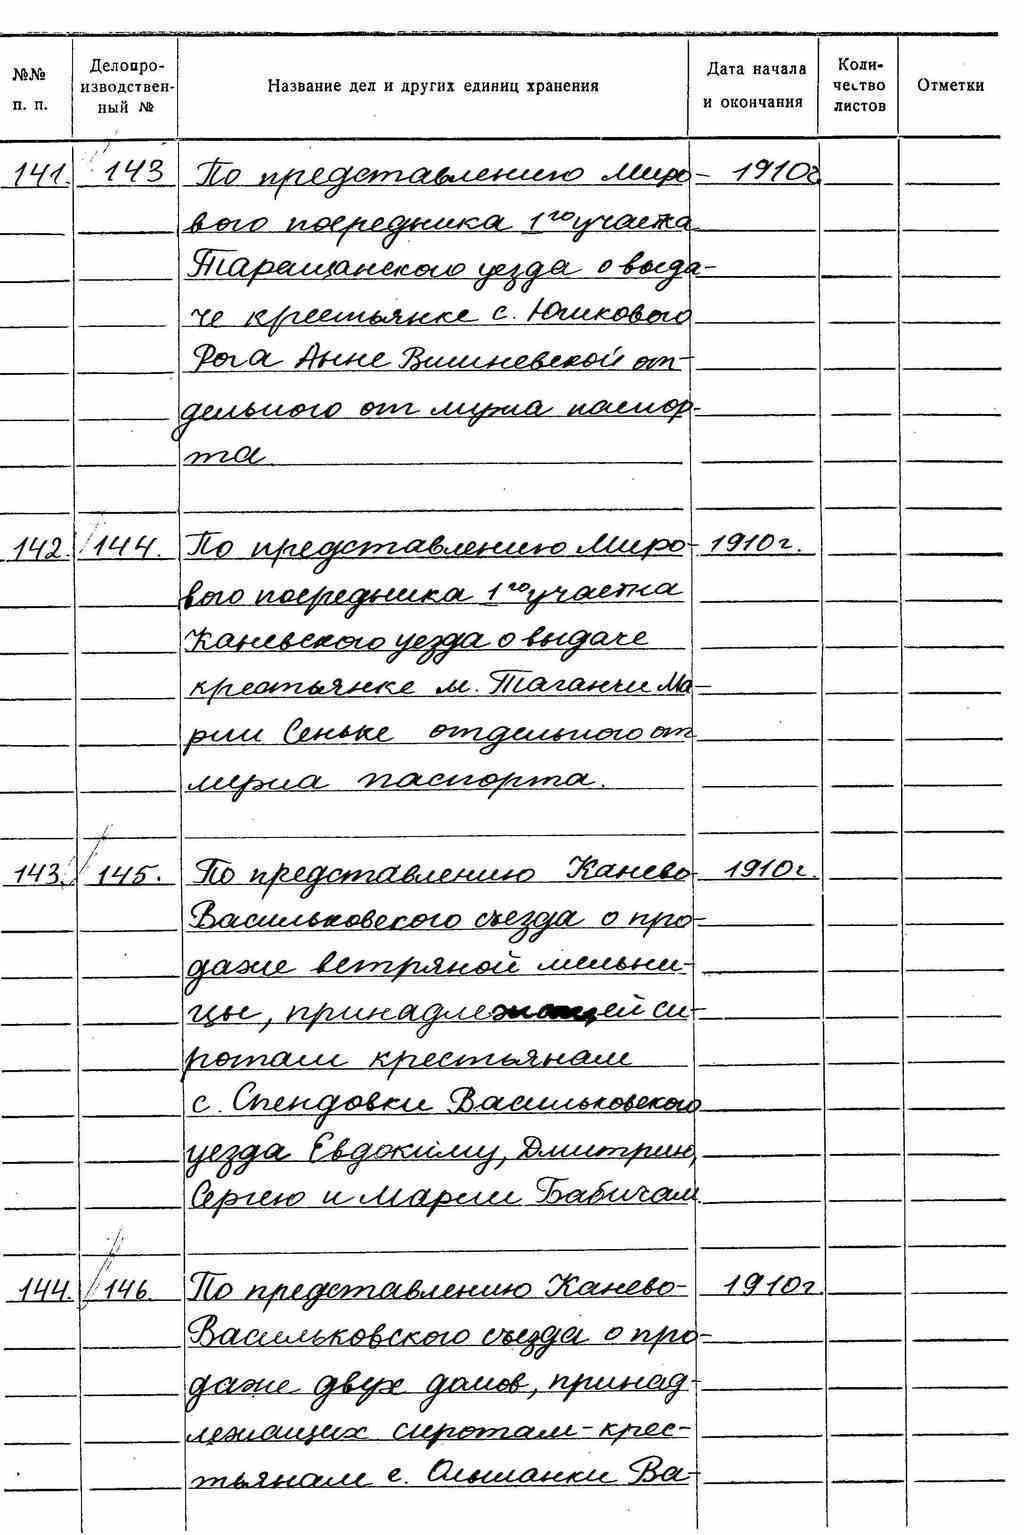 №№ п. п. Делопроизводственный № Название дел и других единиц хранения Дата начала и окончания Количество листов Отметки
141. 143 По представлению Миро- 1910г.
вого посредника 1го участка
Таращанского уезда о выда-
че крестьянке с. Юшкового
Рога Анне Вишневской от-
дельного от мужа паспор-
та
142. 144. По представлению Миро- 1910г.
вого посредника 1го участка
Каневского уезда о выдаче
крестьянке м. Таганчи Ма-
рии Сеньке отдельного от
мужа паспорта.
143. 145. По представлению Канево- 1910г.
Васильковского съезда о про-
даже ветряной мельни-
цы, принадлежащей си-
ротам крестьянам
с. Спендовки Васильковского
уезда Евдокиму, Дмитрию,
Сергею и Марии Бабичам.
144. 146. По представлению Канево- 1910г.
Васильковского съезда о про-
даже двух домов, принад-
лежащих сиротам-крес-
тьянам с. Ольшанки Ва-